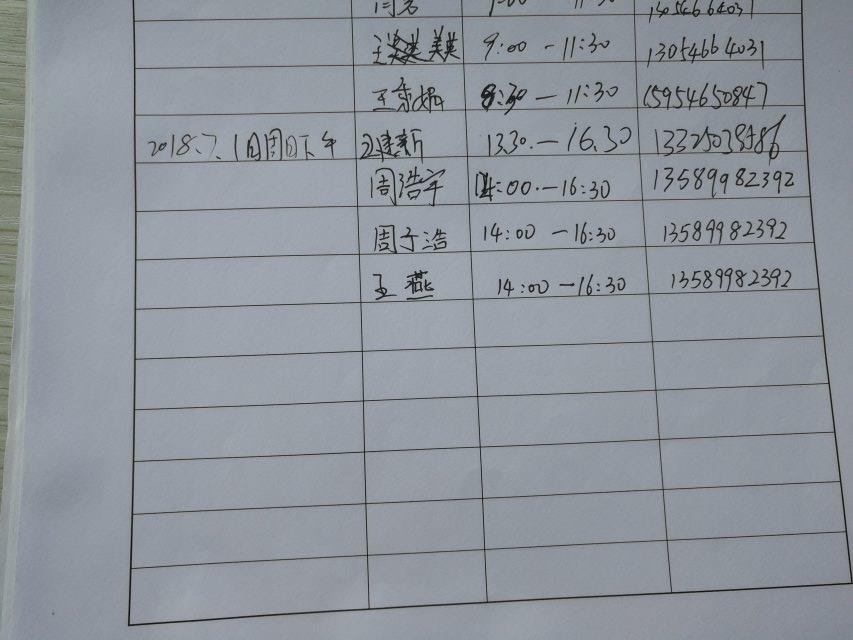 9:00 - 11:30 13054664031
王美英 9:00 - 11:30 13054664031
王秉娟 8:30 - 11:30 15954650847
2018.7.1日周日下午 王建新 13.30.-16.30 13325038586
周浩宇 14:00.-16:30 13589982392
周子浩 14:00 -16:30 13589982392
王燕 14:00 -16:30 13589982392